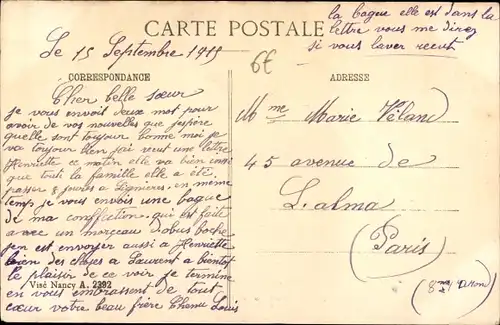 CARTE POSTALE
la bague elle est dans la
lettre vous me direz
si vous laver recut
Le 15 Septembre 1915
6€
CORRESPONDANCE
Cher belle sœur
je vous envoit deux mot pour
avoir de vos nouvelles que jespère
quelle sont toujour bonne moi je
va toujour bien jai recut une lettre
Henriette ce matin elle va bien ainsi
que tout la famille elle a été
passer 8 jours a Lignières. en même
temp je vous envois une bague
de ma confection. qui est faite
avec un morceau Dobus boche
jen est envoyer aussi a Henriette
bien des choses a Laurent a bientot
le plaisir de ce voir je termine
en vous embrassent de tout
cœur votre beau frère Louis
Visé Nancy A. 2392
ADRESSE
Mme Marie
45 avenue de
L'alma
(Paris)
(8me Aron)